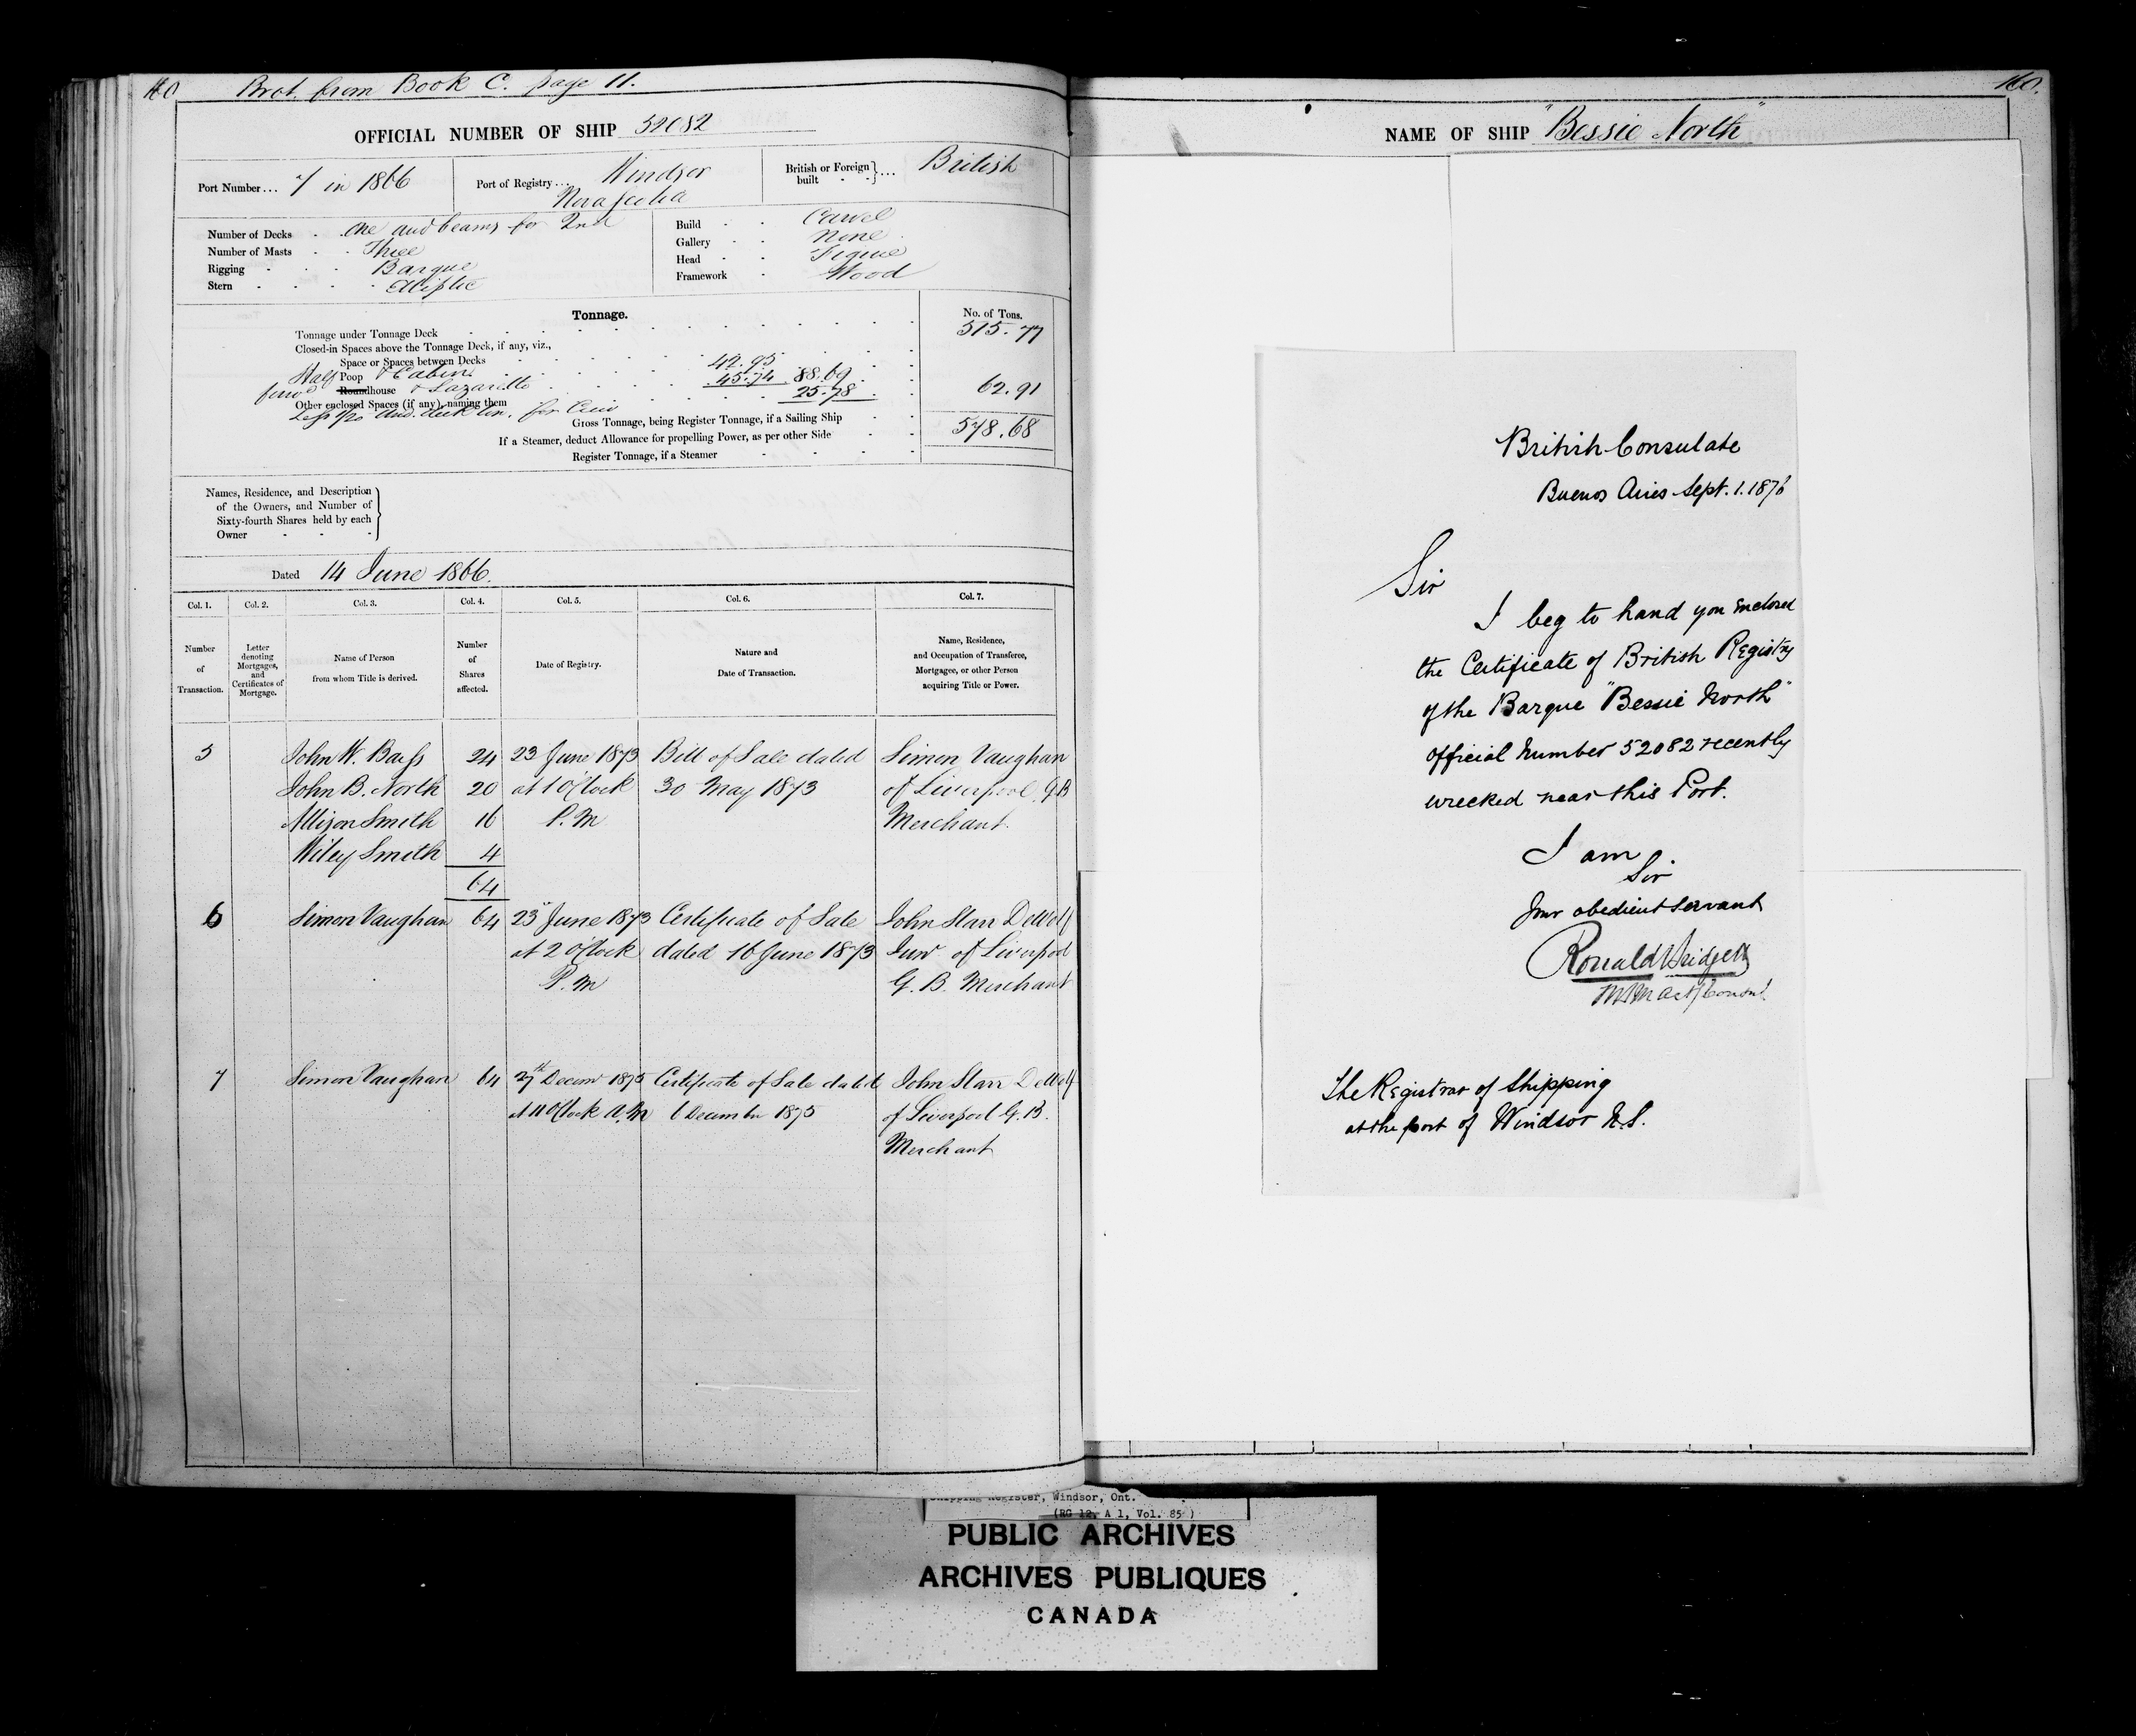 160 Brot. from Book C. page 11.
OFFICIAL NUMBER OF SHIP 52082
Port Number... 7 in 1866 Port of Registry... Windsor Nova Scotia British or Foreign built - - }... British
Number of Decks - - One and beams for 2nd
Number of Masts - - Three
Rigging - - - Barque
Stern - - - - Elliptic
Build - - Carvel
Gallery - - None
Head - - Figure
Framework - Wood
Tonnage. No. of Tons.
Tonnage under Tonnage Deck 515.77
Closed-in Spaces above the Tonnage Deck, if any, viz.,
Space or Spaces between Decks
Half Poop & Cabin 42.95
forw'd Roundhouse & Lazarette 45.74 88.69
Other enclosed Spaces (if any), naming them 25.78 62.91
Less 1/20 und. deck ton. for Crew
Gross Tonnage, being Register Tonnage, if a Sailing Ship 578.68
If a Steamer, deduct Allowance for propelling Power, as per other Side
Register Tonnage, if a Steamer
Names, Residence, and Description
of the Owners, and Number of
Sixty-fourth Shares held by each
Owner - - -
Dated 14 June 1866.
Col. 1. Col. 2. Col. 3. Col. 4. Col. 5. Col. 6. Col. 7.
Number of Transaction.
Letter denoting Mortgages, and Certificates of Mortgage.
Name of Person from whom Title is derived.
Number of Shares affected.
Date of Registry.
Nature and Date of Transaction.
Name, Residence, and Occupation of Transferee, Mortgagee, or other Person acquiring Title or Power.
5 John W. Bass 24 23 June 1873 Bill of Sale dated Simon Vaughan
John B. North 20 at 1 O'Clock 30 May 1873 of Liverpool G B
Allison Smith 16 P. M Merchant.
Wiley Smith 4
64
6 Simon Vaughan 64 23 June 1873 Certificate of Sale John Starr DeWolf
at 2 O'Clock dated 16 June 1873 Junr of Liverpool
P. M G. B. Merchant
7 Simon Vaughan 64 27th Decemr 1875 Certificate of Sale dated John Starr DeWolf
at 11 O'Clock A.M 6 December 1875 of Liverpool G. B.
Merchant
160.
NAME OF SHIP "Bessie North"
British Consulate
Buenos Aires Sept. 1. 1876
Sir
I beg to hand you enclosed
the Certificate of British Registry
of the Barque "Bessie North"
Official Number 52082 recently
wrecked near this Port.
I am
Sir
Your obedient Servant
Ronald Bridgett
HBM Act/Consul
The Registrar of Shipping
at the port of Windsor N.S.
Shipping Register, Windsor, Ont.
(RG 12, A 1, Vol. 85)
PUBLIC ARCHIVES
ARCHIVES PUBLIQUES
CANADA